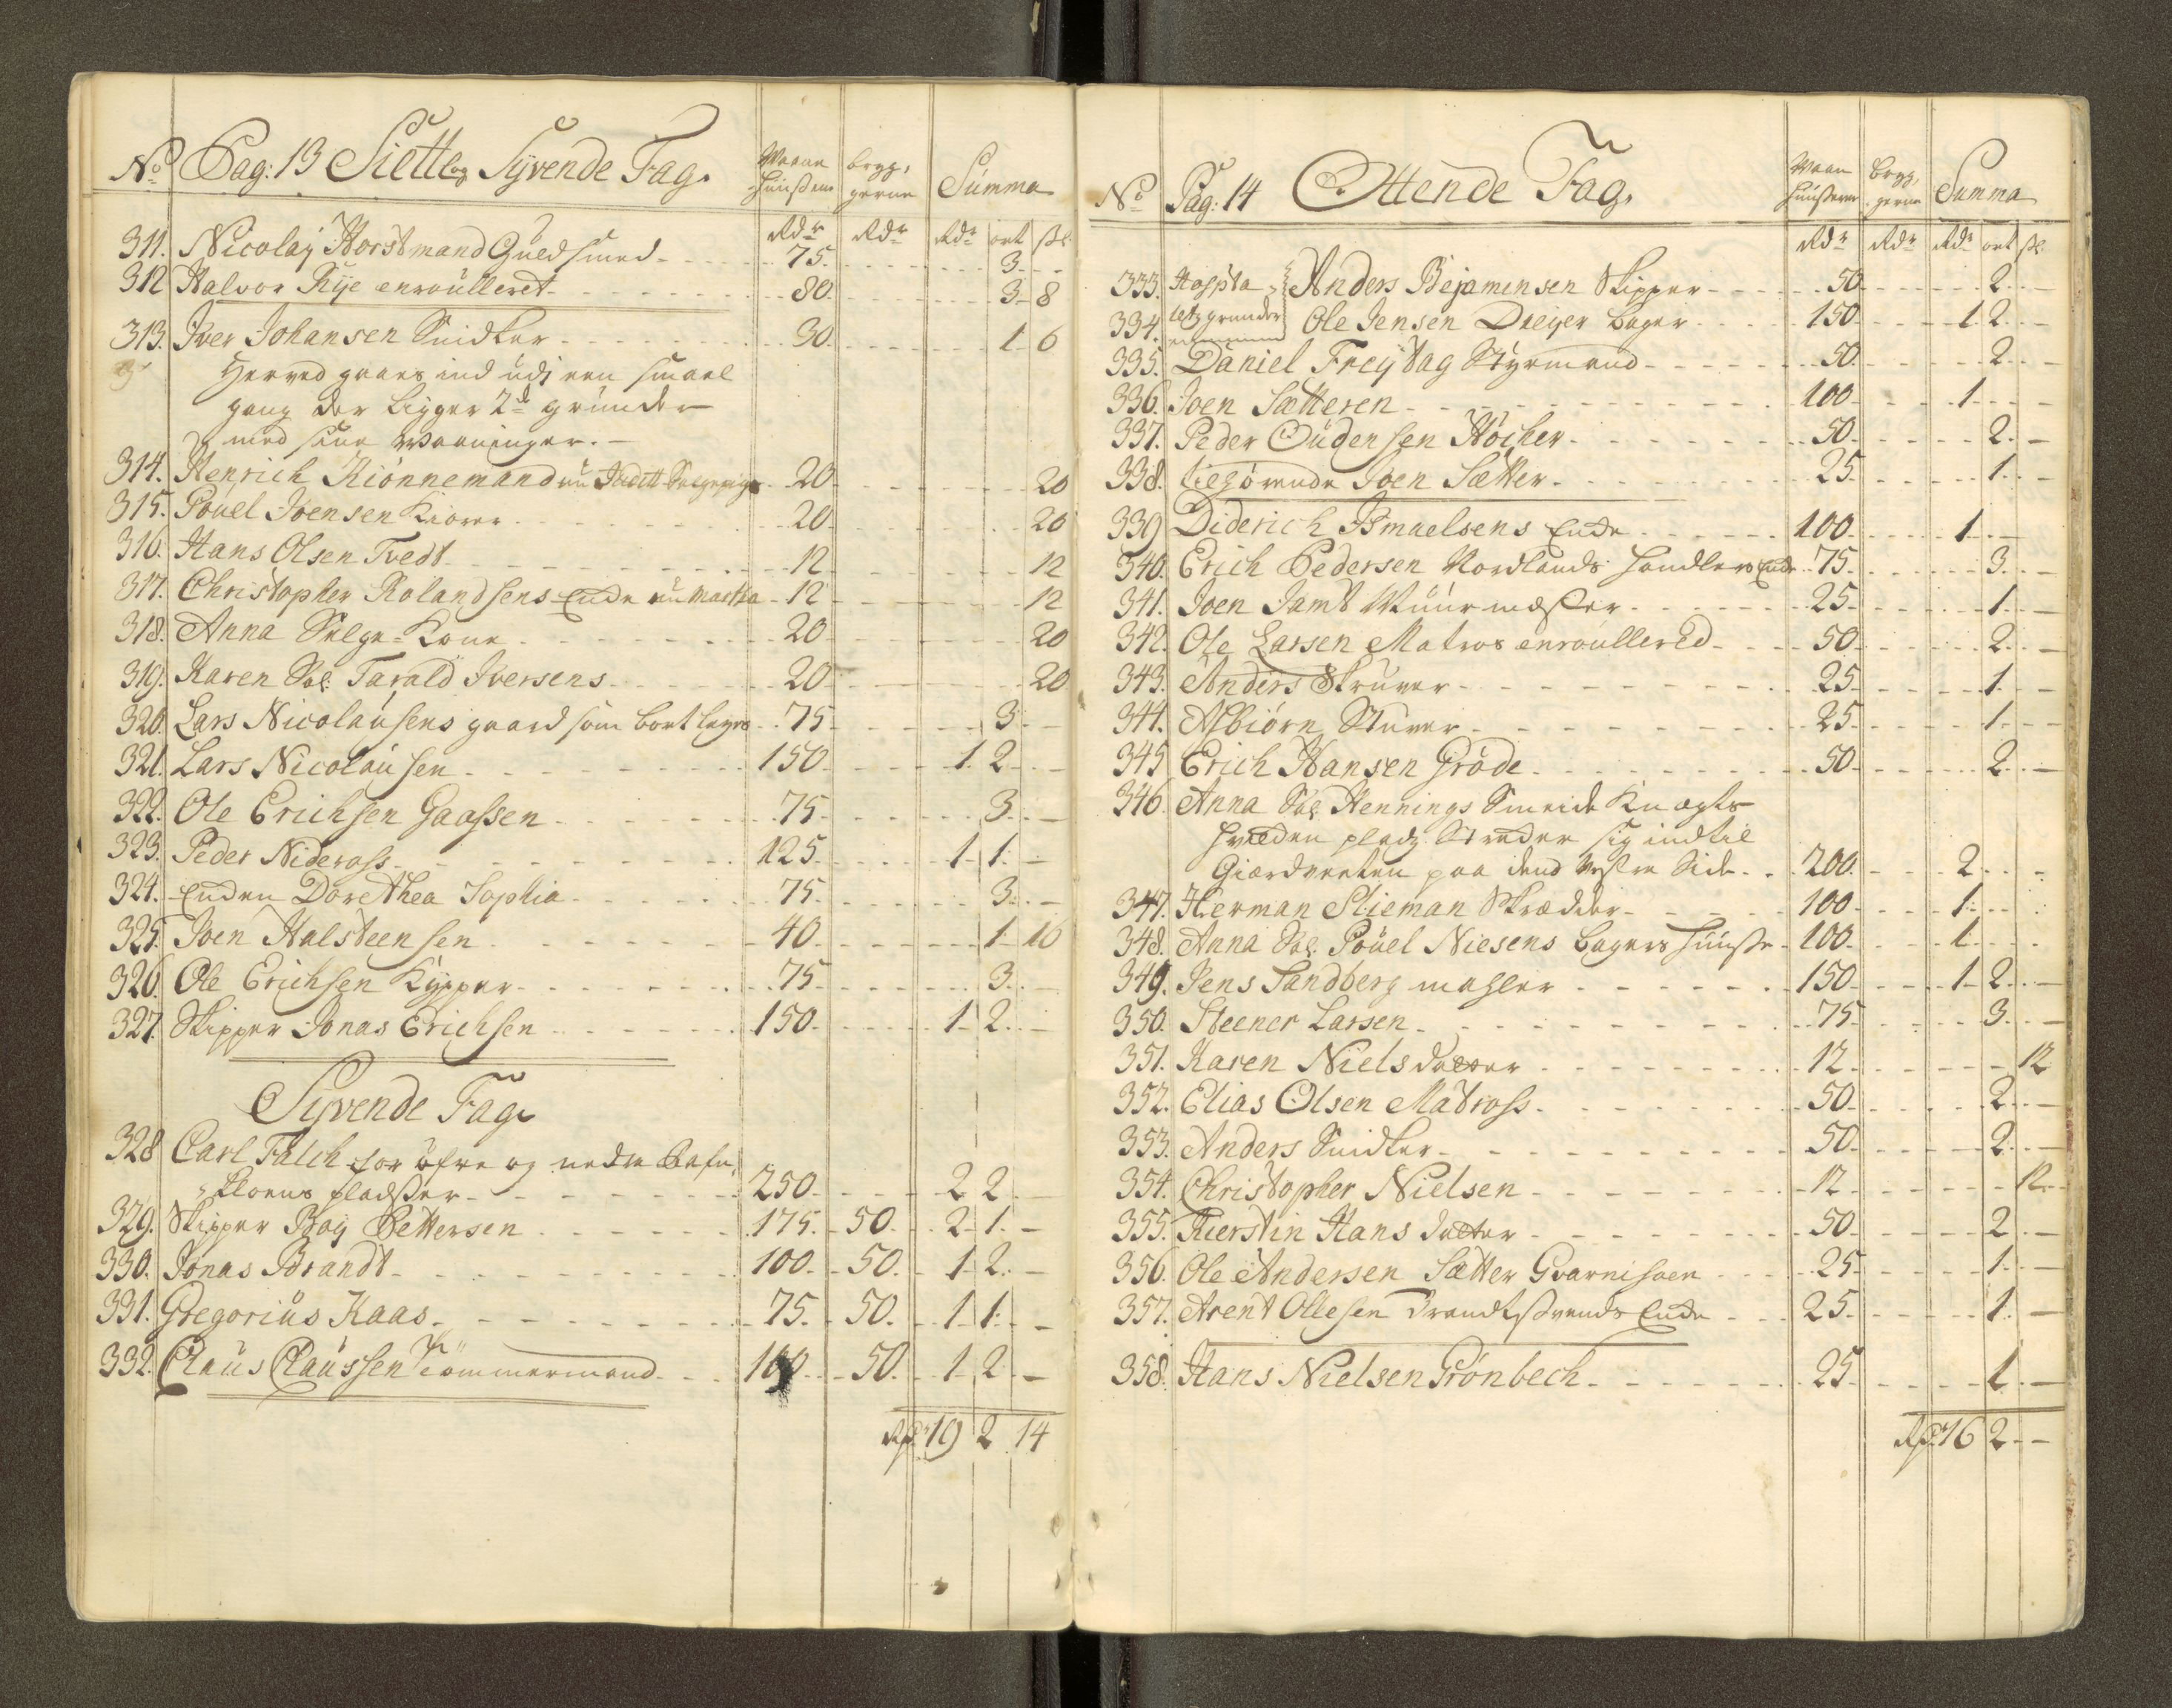 No Pag: 13 Siette og Syvende Fag. Waane Huuserne bryggerne Summa
Rdr Rdr Rdr ort sk
311. Nicolaÿ Horstmand Guldsmed 75. 3. -
312 Halvor Rÿe enroulleret 80. 3. 8
313. Iver Johansen Snidker 30. 1. 6
Herved gaaes ind udj een smael
gang der ligger 2de grunder
med sine Waaninger. -
314. Henrich Kiönnemand nu Judith 20. 20
315. Pouel Joensen Kiörer 20. 20
316. Hans Olsen Tvedt 12. 12
317. Christopher Rolandsens Encke nu Martha 12. 12
318. Anna Selge-Kone 20. 20
319. Karen Sal. Tarald Iversens 20. 20
320. Lars Nicolausens gaard som bort leyes 75. 3. -
321. Lars Nicolausen 150. 1. 2. -
322. Ole Erichsen Gaassen 75. 3. -
323. Peder Nideross 125. 1. 1. -
324. Encken Dorethea Sophia 75. 3. -
325. Joen Halsteensen 40. 1. 10
326. Ole Erichsen Kÿpper 75. 3. -
327. Skipper Jonas Erichsen 150. 1. 2. -
Syvende Fag
328 Carl Falch for öfre og nedre Safn,
pladser 250. 2 2
329. Skipper Boÿ Pettersen 175. 50. 2. 1. -
330. Jonas Brandt 100. 50. 1. 2. -
331. Gregorius Kaas 75. 50. 1. 1. -
332. Claus Claussen Tömmermand 100. 50. 1. 2. -
Rdr 19 2 14
No Pag: 14 Ottende Fag. Waane huuserne brygerne Summa
Rdr Rdr Rdr ort sk
333. Hospita- Anders Bejamensen Skipper 50. 2. -
334. letz grunder Ole Jensen Dreÿer bager 150. 1. 2. -
335. Daniel Freÿtag Stÿrmand 50. 2. -
336. Joen Sætteren 100. 1. -
337. Peder Oudensen Höcher 50. 2. -
338. tilhörende Joen Sætter 25. 1. -
339 Diderich Ismaelsens Encke 100. 1. -
340. Erich Pedersen Nordlands handlers Encke 75. 3. -
341. Joen Jamt Muurmester 25. 1. -
342. Ole Larsen Matros enroullered 50. 2. -
343. Anders Struver 25. 1. -
344. Asbiörn Stuver 25. 1. -
345 Erich Hansen Gröde 50. 2. -
346. Anna Sal. Hennings Smeide Knegts
hvilcken pladz strecker sig ind til
Giærdveeten paa dend vestre Side 200. 2. -
347. Herman Slieman Skrædder 100. 1. -
348. Anna Sal. Pouel Niesens bagers huuse 100. 1. -
349. Jens Sandberg mahler 150. 1. 2. -
350. Steener Larsen 75. 3. -
351. Karen Nielsdatter 12. 12
352. Elias Olsen Matross 50. 2. -
353. Anders Snidker 50. 2. -
354. Christopher Nielsen 12. 12.
355. Kierstin Hansdatter 50. 2. -
356. Ole Andersen Sætter Gvarnisoen 25. 1. -
357. Arent Ollesen Encke 25. 1. -
358. Hans Nielsen Grönbech 25. 1. -
Rdr 16 2. -